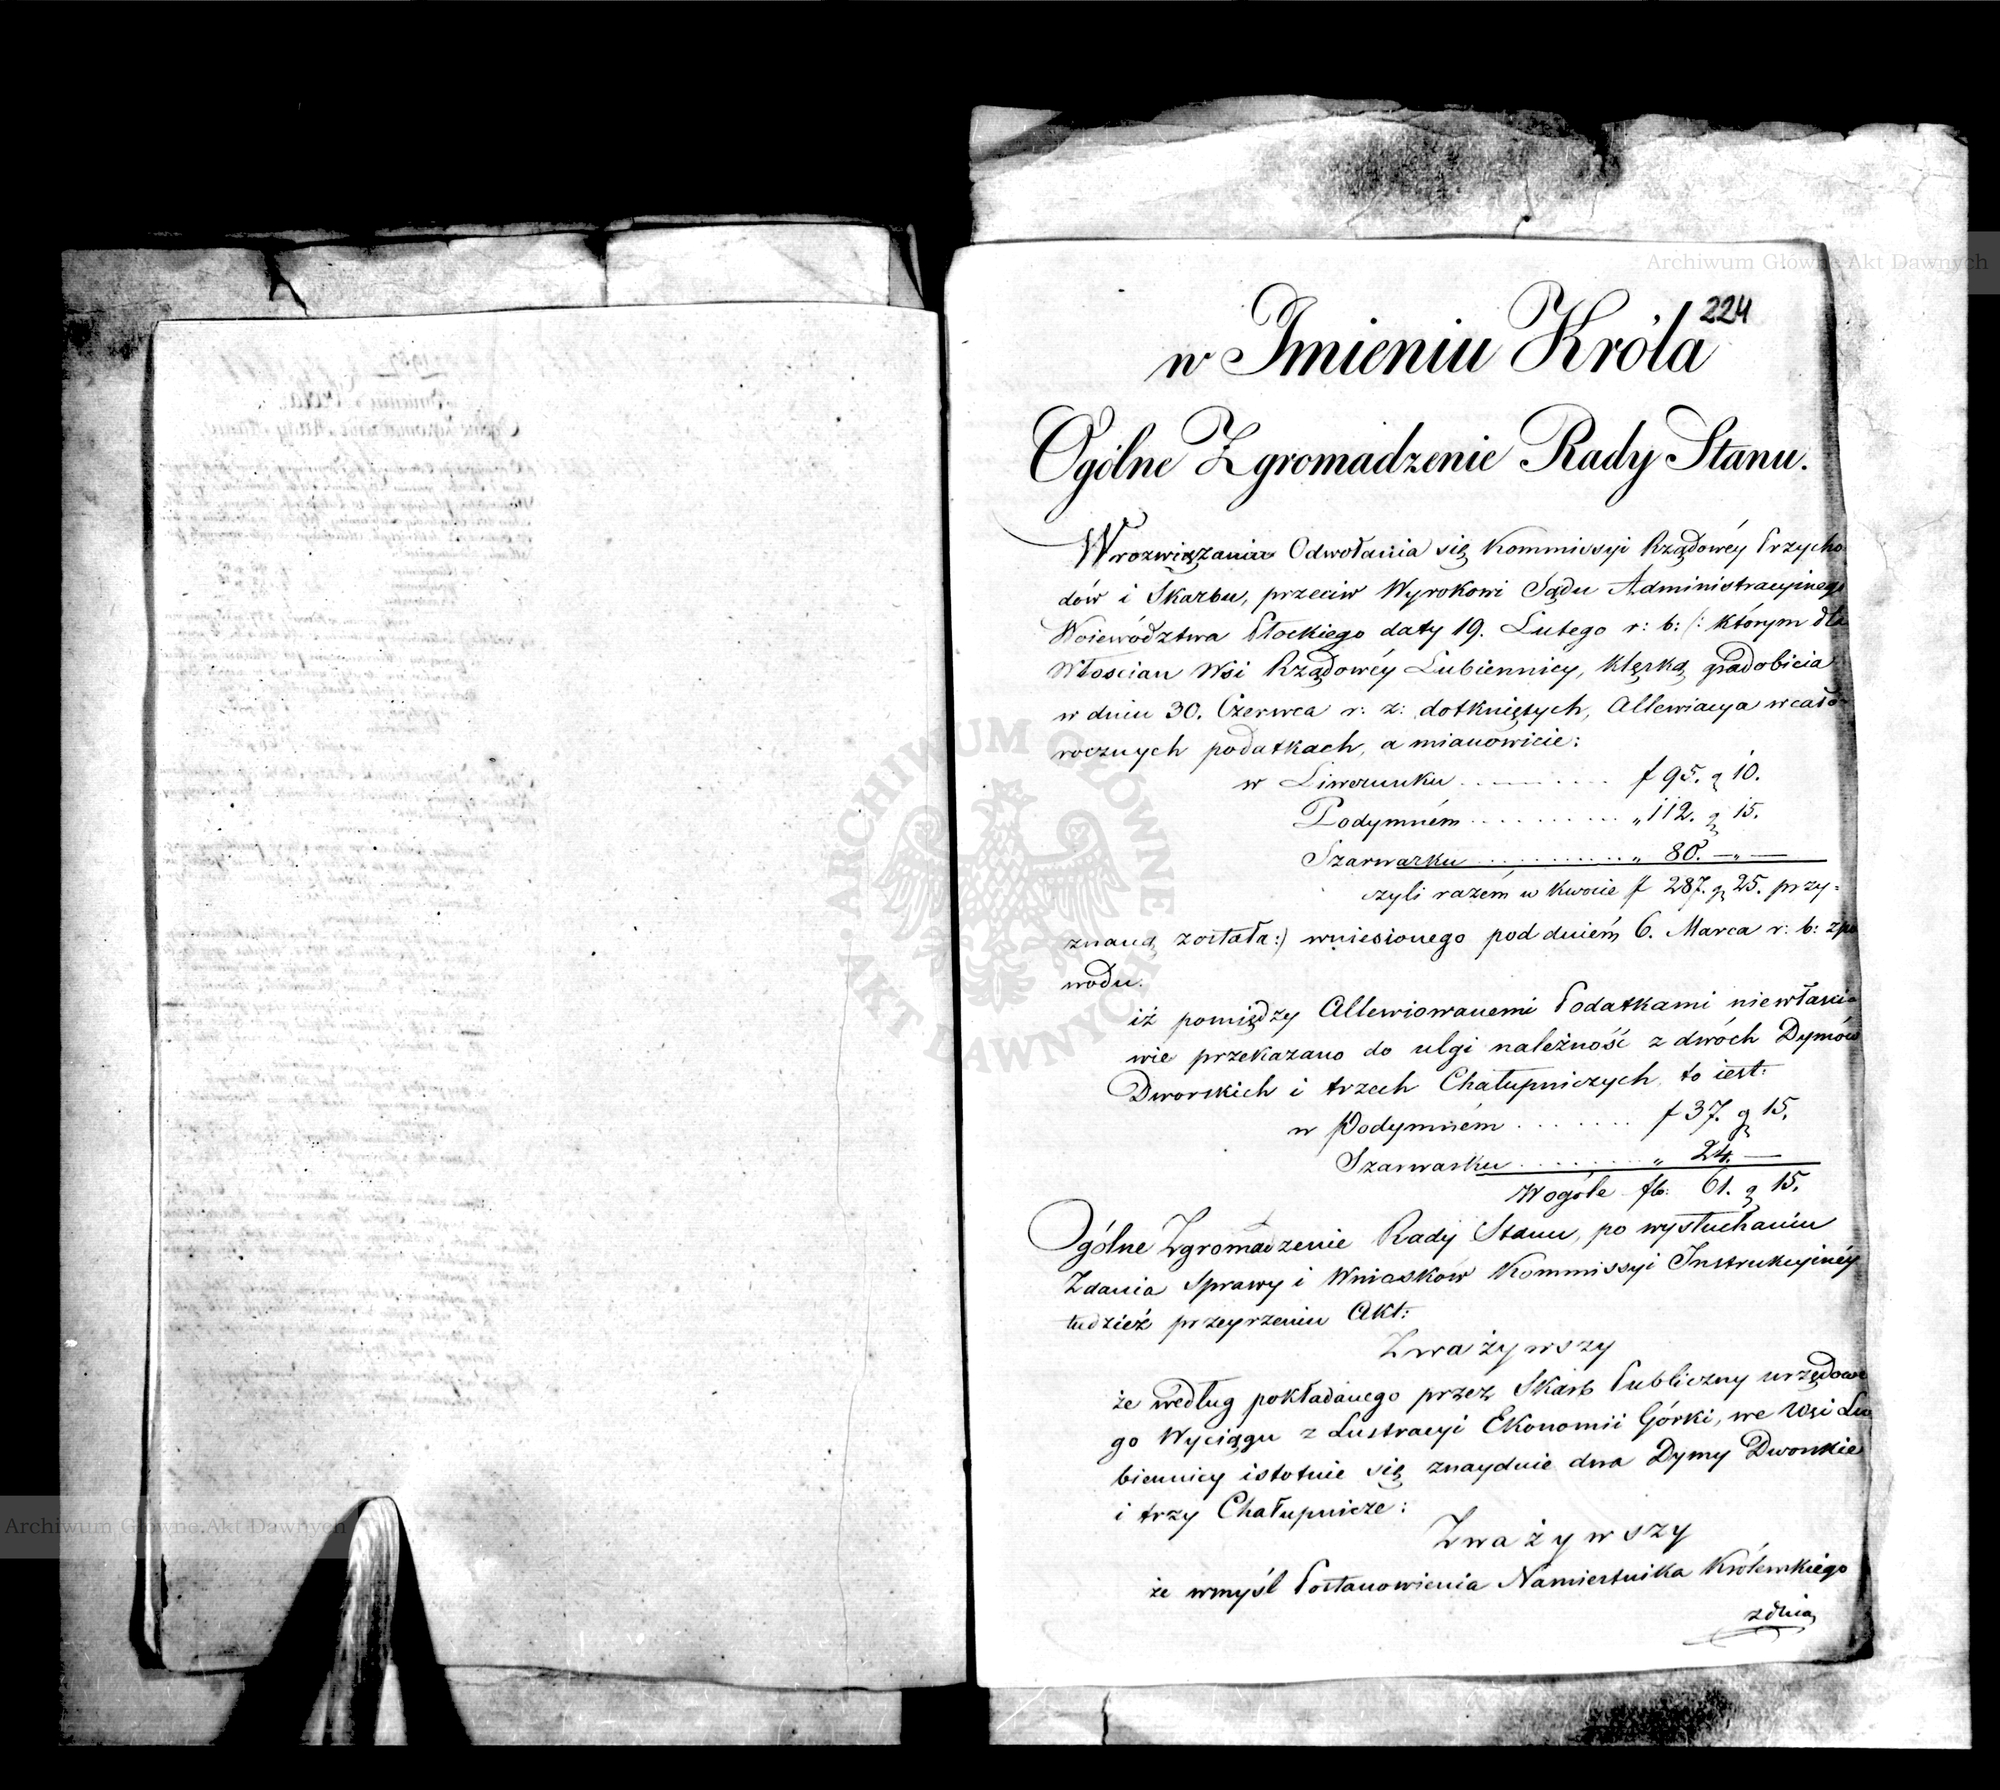 224
w Imieniu Króla
Ogólne Zgromadzenie Rady Stanu.
W rozwiązaniu Odwołania się Kommissyi Rządowéy Przycho
dów i Skarbu, przeciw Wyrokowi Sądu Administracyinego
Woiewództwa Płockiego daty 19. Lutego r: b: (: którym dla
Włościan Wsi Rządowéy Lubiennicy, klęską gradobicia
w dniu 30. Czerwca r: z: dotkniętych, Allewiacya w cało-
rocznych podatkach, a mianowicie:
w Liwerunku f 95. g 10.
Podymném „ 112. g 15.
Szarwarku „ 80. — „ —
czyli razém w kwocie f 287. g 25. przy=
znaną została:) wniesionego pod dniém 6. Marca r: b: z po
wodu.
iż pomiędzy Allewiowanemi Podatkami niewłaści
wie przekazano do ulgi należność z dwóch Dymów
Dworskich i trzech Chałupniczych to iest:
w Podymném f 37. g 15.
Szarwarku „ 24. —
Wogóle fl: 61. g 15.
Ogólne Zgromadzenie Rady Stanu, po wysłuchaniu
Zdania Sprawy i Wniosków Kommissyi Instrukcyinéy
tudzież przeyrzeniu Akt:
Zważywszy
że według pokładanego przez Skarb Publiczny urzędowe
go Wyciągu z Lustracyi Ekonomii Górki, we Wsi Lu
biennicy istotnie się znayduie dwa Dymy Dworskie
i trzy Chałupnicze:
Zważywszy
że wmyśl Postanowienia Namiestnika Królewskiego
z dnia
Archiwum Główne Akt Dawnych
ARCHIWUM GŁÓWNE AKT DAWNYCH
Archiwum Główne Akt Dawnych